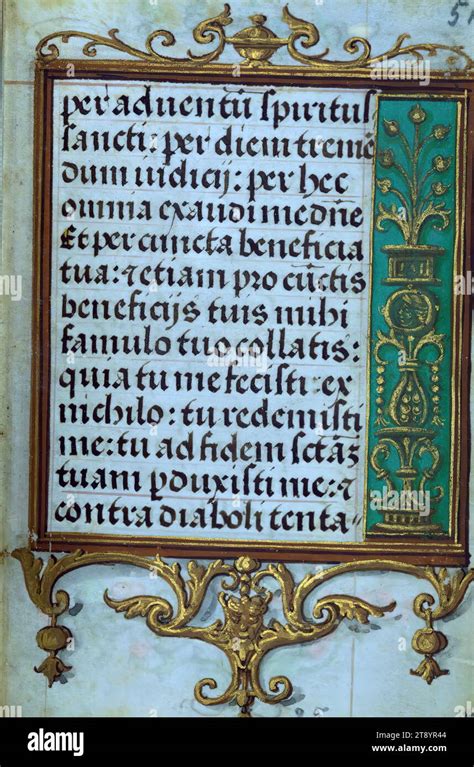 5
per aduentū spiritus
sancti: per diem treme
dum iudicij: per hec
omnia exaudi me dñe
Et per cuncta beneficia
tua: ⁊ etiam pro cūctis
beneficijs tuis mihi
famulo tuo collatis:
quia tu me fecisti ex
nichilo: tu redemisti
me: tu ad fidem sctāȝ
tuam ꝑduxisti me: ⁊
contra diaboli tenta-
alamy
Image ID: 2T8YR44
www.alamy.com